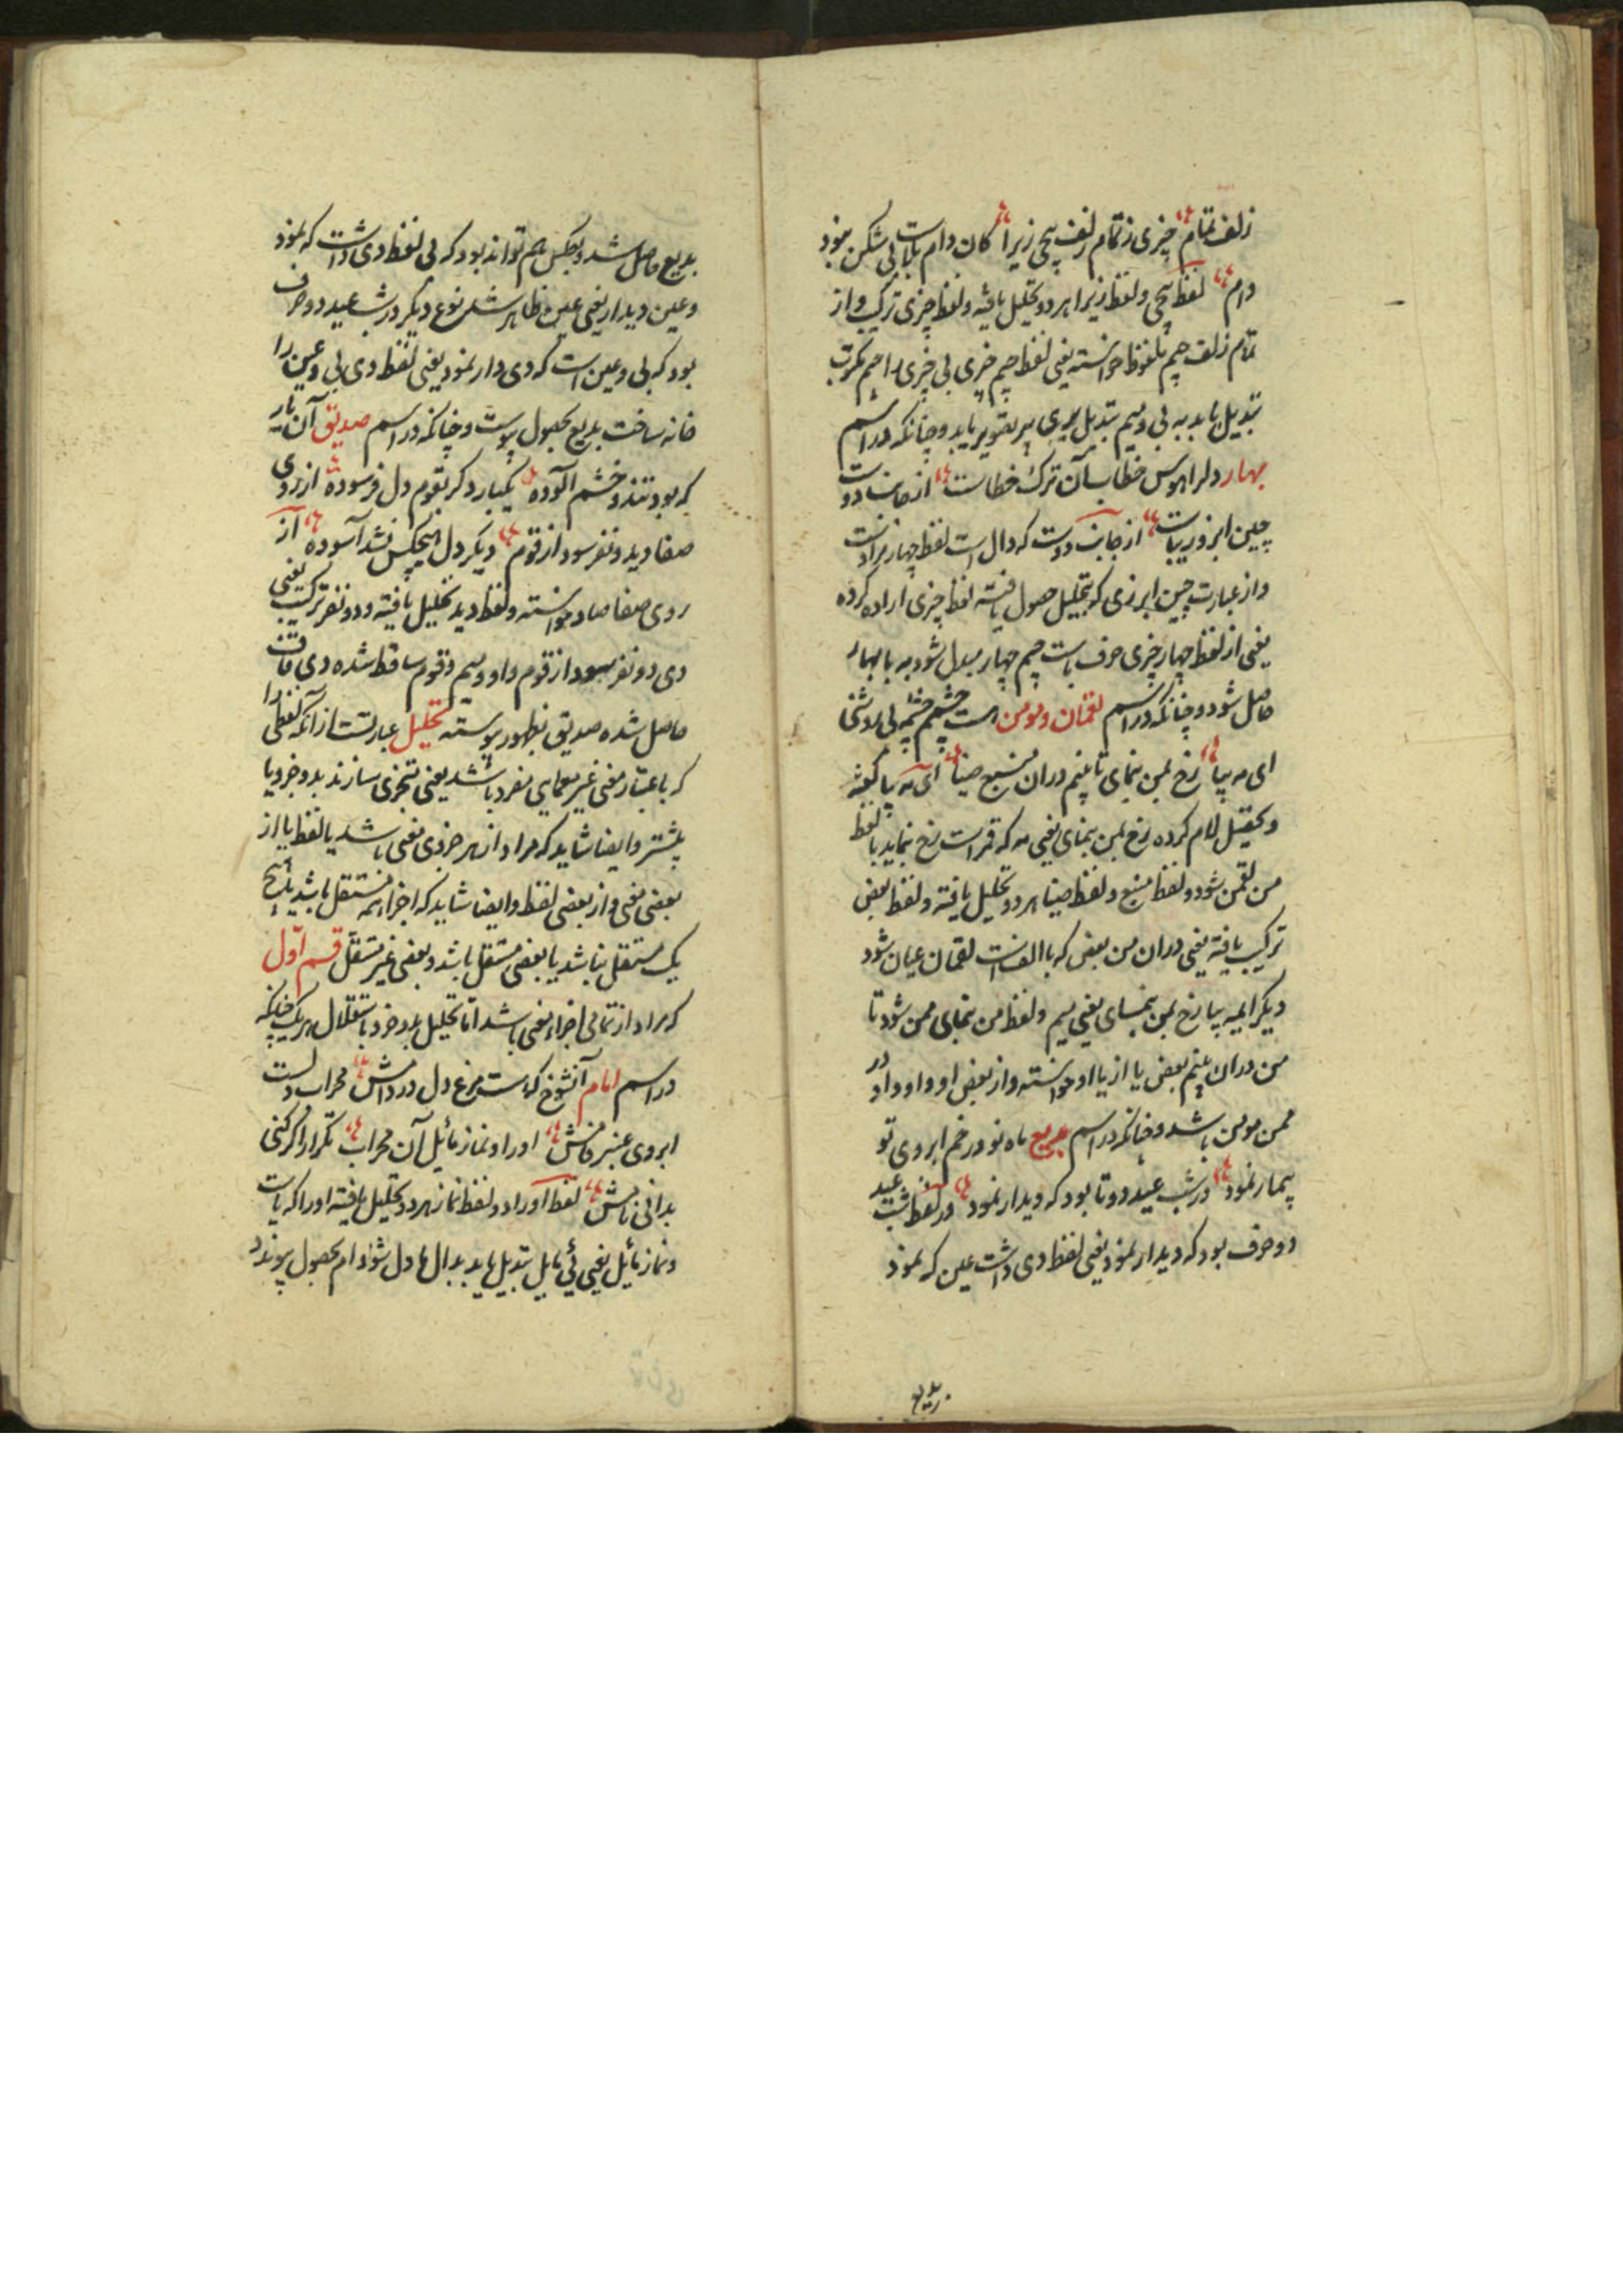 زلف تمام چیزی ز تمام زلف پیچی زیرا کان دام بلاست بی شکن نبود
دام لفظ پیچی و لفظ زیرا هر دو تحلیل یافته و لفظ چیزی ترکیب و از
تمام زلف جیم ملفوظ خواسته یعنی لفظ جیم چیزی بی چیزی را جیم
تبدیل یابد به بی و میم تبدیل پیری پیر بقویر یابد و چنانکه در اسم
بهار دلرا هوس خطا بسان ترک خطاست از جانب دوست
چین ابرو زیباست از جانب دوست که دال است لفظ چهار مراد است
و از عبارت چین ابرزی که بتحلیل حصول یافته لفظ چیزی اراده کرده
یعنی از لفظ چهار چیزی حرف باست جیم چهار مبدل شود به با بهار
حاصل شود و چنانکه در اسم لقمان و مومن است چشمم چشم بی روشنی
ای مه بیا رخ بمن بنمای تا بینم دران منبع ضیا ای مه بیا گفته
و تحصیل لام کرده رخ بمن بنمای یعنی مه که قمر است رخ نماید با لفظ
من لقمن شود و لفظ منبع و لفظ ضیا هر دو تحلیل یافته و لفظ بعض
ترکیب یافته یعنی دران من بعض که با الف است لقمان عیان شود
دیگر ای مه بیا رخ بمن بنمای یعنی میم و لفظ من بنمای ممن شود تا
من دران بینم بعض یا از یا او خواسته و از بعض او واو و او در
ممن مومن باشد و چنانکه در اسم بدیع ماه نو در خم ابروی تو
بیمار نمود در شب عید دو تا بود که دیدار نمود در لفظ شب عید
دو حرف بود که دیدار نمود یعنی لفظ دی داشت عین که نمود
بدیع
بدیع حاصل شد و بعکس هم تواند بود که بی لفظ دی داشت که نمود
و عین دیدار یعنی عین ظاهر شد نوع دیگر در شب عید دو حرف
بود که بی و عین است که دی دار نمود یعنی لفظ دی بی و عین را
خانه ساخت بدیع بحصول پیوست و چنانکه در اسم صدیق آن یار
که بود تند و خشم آلوده یکبار دگر بقوم دل فرسوده از روی
صفا دید دو نفر سود از قوم دیگر دل هیچکس نشد آسوده از
روی صفا صاد خواسته و لفظ دید تحلیل یافته و دو نفر ترکیب یعنی
دی دو نفر سود از قوم واو و میم و قوم ساقط شده دی قاف
حاصل شده صدیق بظهور پیوسته تحلیل عبارتست از آنکه لفظی را
که باعتبار معنی غیر معمایی مفرد باشد یعنی متجزی سازند بدو جزو یا
بیشتر و ایضا شاید که مراد از هر جزوی معنی باشد یا لفظ یا از
بعضی معنی و از بعضی لفظ و ایضا شاید که اجزا همه مستقل باشد یا هیچ
یک مستقل نباشد یا بعضی مستقل باشد و بعضی غیر مستقل قسم اول
که مراد از تمامی اجزاء معنی باشد اما تحلیل بدو جزو باستقلال هر یک چنانکه
در اسم امام آن شوخ که است مرغ دل در دامش محراب دلست
ابروی عنبر فامش او را و نماز مائیل آن محراب تکرار اگر کنی
بدانی نامش لفظ اوراد و لفظ نماز هر دو تحلیل یافته اورا که یاست
و نماز مائیل یعنی ئی مایل تبدیل یابد بدال ها دل شود ام بحصول پیوندد